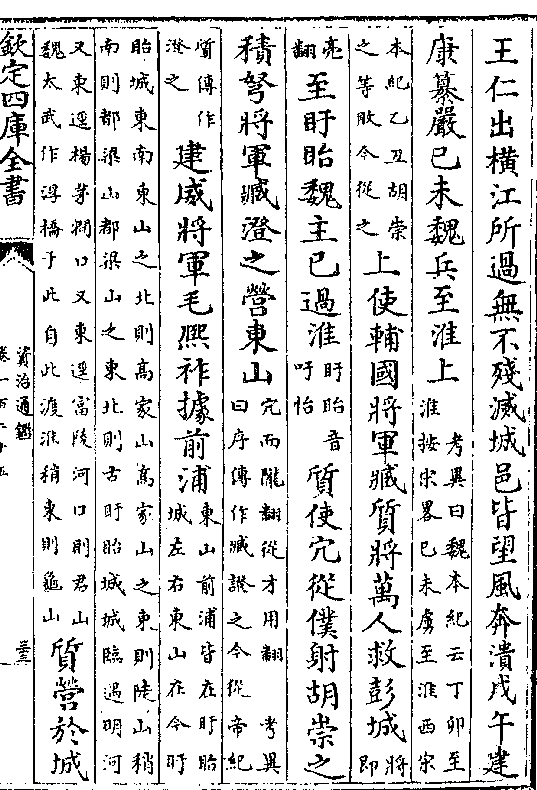 王仁出橫江所過無不殘滅城邑皆望風奔潰戊午建
康纂嚴己未魏兵至淮上考異曰魏本紀云丁卯至淮按宋畧己未虜至淮西宋
本紀乙丑胡崇之等敗今從之上使輔國將軍臧質將萬人救彭城將即
亮翻至盱眙魏主已過淮盱眙音吁怡質使冗從僕射胡崇之
積弩將軍臧澄之營東山冗而隴翻從才用翻考異曰序傳作臧證之今從帝紀
質傳作澄之建威將軍毛熙祚據前浦東山前浦皆在盱眙城左右東山在今盱
眙城東南東山之北則高家山高家山之東則陡山稍南則都梁山都梁山之東北則古盱眙城城臨遇明河
又東逕楊茅澗口又東逕富陵河口則君山魏太武作浮橋于此自此渡淮稍東則龜山質營於城
欽定四庫全書
資治通鑑
卷一百二十五